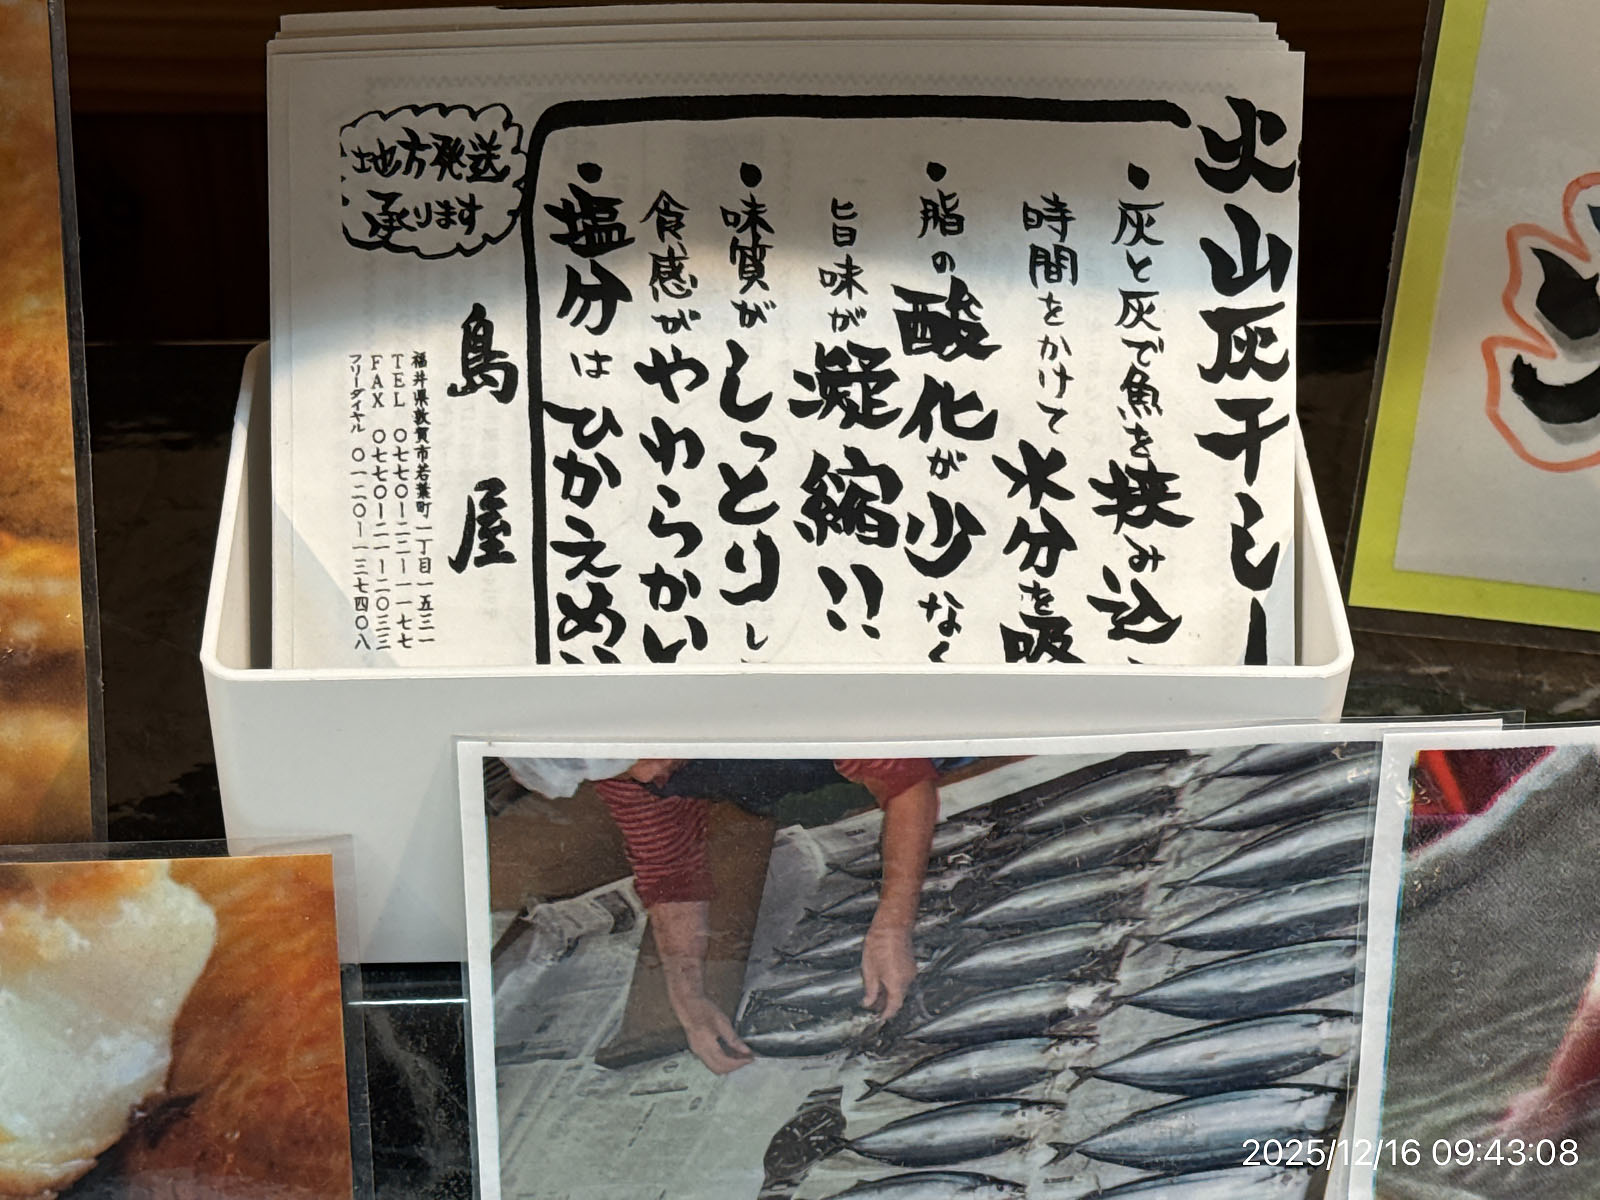 火山灰干し
灰と灰で魚を挟み込
時間をかけて水分を吸
脂の酸化が少なく
旨味が凝縮!!
味質がしっとりし
食感がやわらかい
塩分はひかえめ
地方発送
承ります
島屋
福井県敦賀市若葉町一丁目一五三一
TEL 〇七七〇ー二二ー一一七七
FAX 〇七七〇ー二一ー二〇三三
フリーダイヤル 〇一二〇ー一三七四〇八
2025/12/16 09:43:08